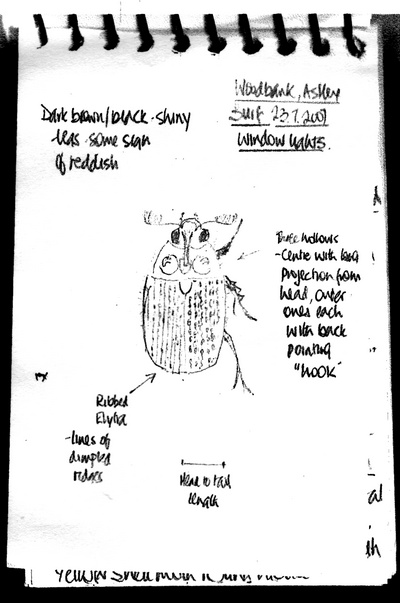 Woodbank, Ashley
23.7.2001
Window lights.
Dark brown/black - shiny
legs - some sign
of reddish
Three hollows
- Centre with long
projection from
head, outer
ones each
with back
pointing
"hook"
Ribbed
Elytra
- lines of
dimpled
ridges
Head to tail
length
al
th
Yellow Shell moth